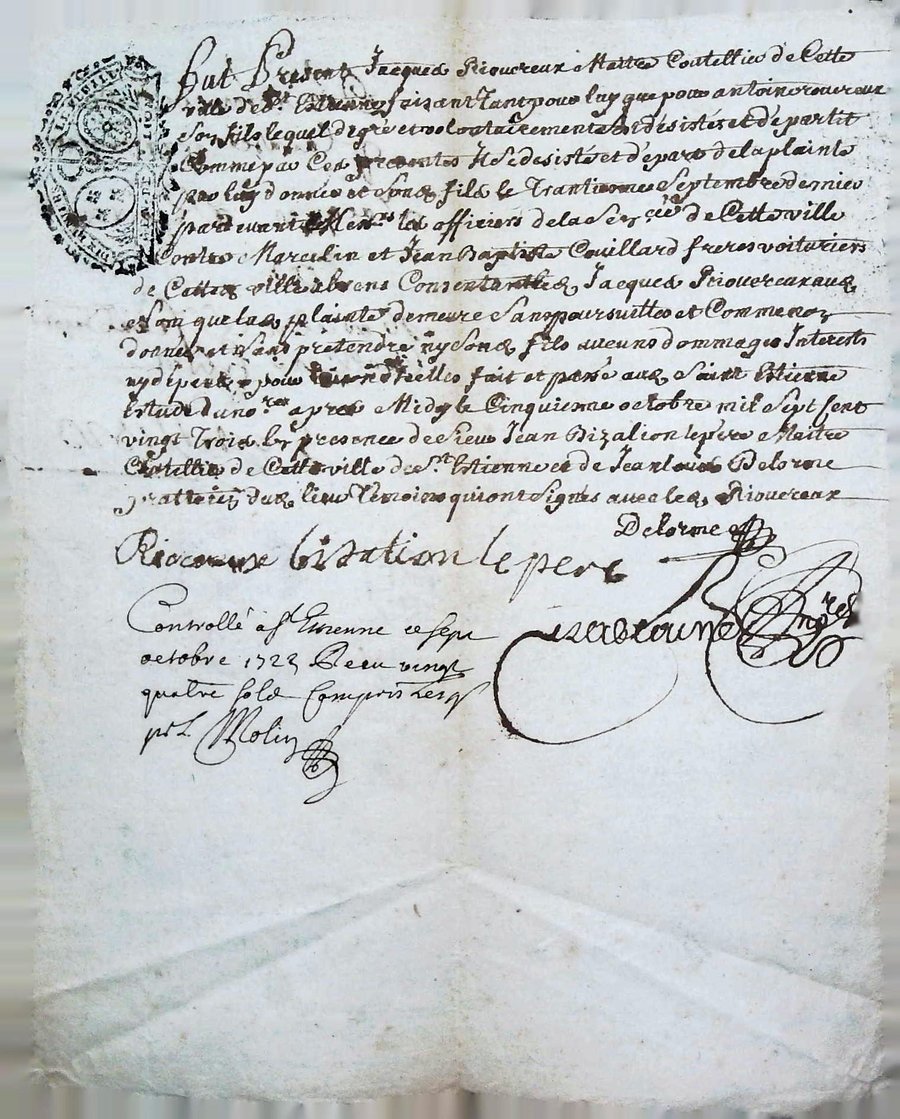 Fut Present Jacques Riouereux Maitre Coutellier de Cette
ville de St Estienne faisant tant pour luy que pour antoine riouereux
Son fils lequel de gré et volontairement s'est désisté et départit
Comme par Ces presentes Il Se desiste et départ de la plainte
par luy donnée et Son fils le Trantieme Septembre dernier
pardevant les officiers de la de Cette ville
Contre Marcelin et Jean Baptiste Couillard freres voituriers
de Cette ville Consentant Jacques Riouereux
et Son que la plainte demeure Sans poursuittes et Comme non
donnée et Sans prétendre ny Son fils aucuns dommages Interests
ny dépens pour fait et passé aud Saint Estienne
Estude du nore apres Midy le Cinquieme octobre mil Sept Cent
vingt Trois En presence de Sieur Jean Bizalion le pere Maitre
Coutellier de Cette ville de St Estienne et de Jean louis Delorme
pratticien dud lieu temoins qui ont Signés avec led Riouereux
Delorme
Riocreux bisalion le pere
nre
Controllé a St Etienne ce sept
octobre 1723 Receu vingt
quatre sols Compris les
Molin